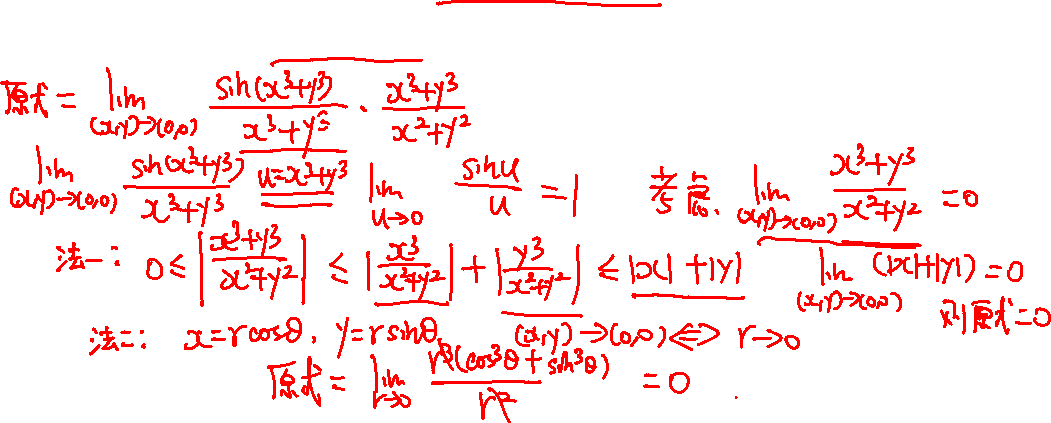 原式 = lim_{(x,y)→(0,0)} \frac{sin(x³+y³)}{x³+y³} · \frac{x³+y³}{x²+y²}
lim_{(x,y)→(0,0)} \frac{sin(x³+y³)}{x³+y³} \overset{u=x³+y³}{=} lim_{u→0} \frac{sinu}{u} = 1 考虑. lim_{(x,y)→(0,0)} \frac{x³+y³}{x²+y²} = 0
法一: 0 ≤ |\frac{x³+y³}{x²+y²}| ≤ |\frac{x³}{x²+y²}| + |\frac{y³}{x²+y²}| ≤ |x| + |y| lim_{(x,y)→(0,0)} (|x|+|y|) = 0
则原式=0
法二: x=rcosθ, y=rsinθ, (x,y)→(0,0) ⇔ r→0
原式 = lim_{r→0} \frac{r³(cos³θ + sin³θ)}{r²} = 0